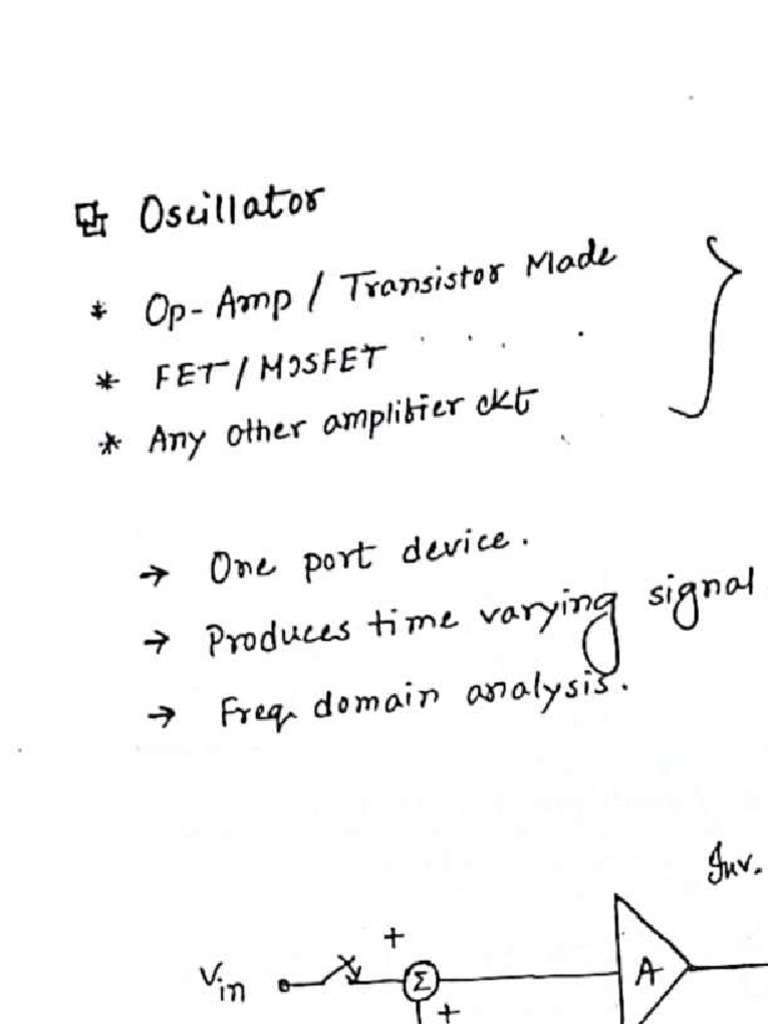 Oscillator
* Op-Amp / Transistor Made
* FET/MOSFET
* Any other amplifier ckt
→ One port device.
→ Produces time varying signal
→ Freq. domain analysis.
Inv.
+
Vin
Σ
A
+